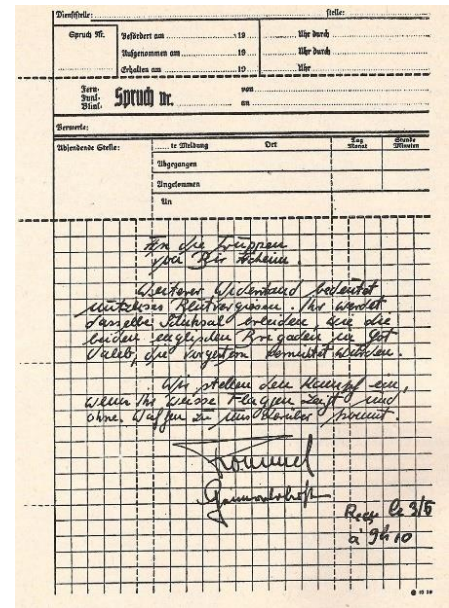 Dienststelle: Stelle:
Spruch Nr. Befördert am 19 Uhr durch
Aufgenommen am 19 Uhr durch
Erhalten am 19 Uhr
Fern-
Funk-
Blink-
Spruch Nr. von
an
Vermerke:
Absendende Stelle: te Meldung Ort Tag Monat Stunde Minuten
Abgegangen
Angekommen
An
An die Truppen
von Bir Acheim.
Weiterer Widerstand bedeutet
nutzloses Blutvergiessen. Ihr werdet
dasselbe Schiksal erleiden, wie die
beiden englischen Brigaden in Got
Ualeb, die vorgestern vernichtet wurden.
Wir stellen den Kampf ein,
wenn Ihr weisse Flaggen zeigt und
ohne Waffen zu uns herüber kommt.
Rommel
Generaloberst
Reçu le 3/5
à 9h10